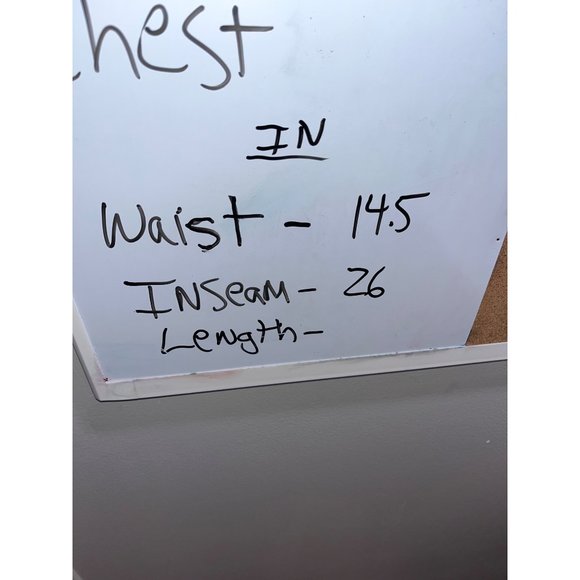 hest
IN
Waist - 14.5
INSeam - 26
Length -